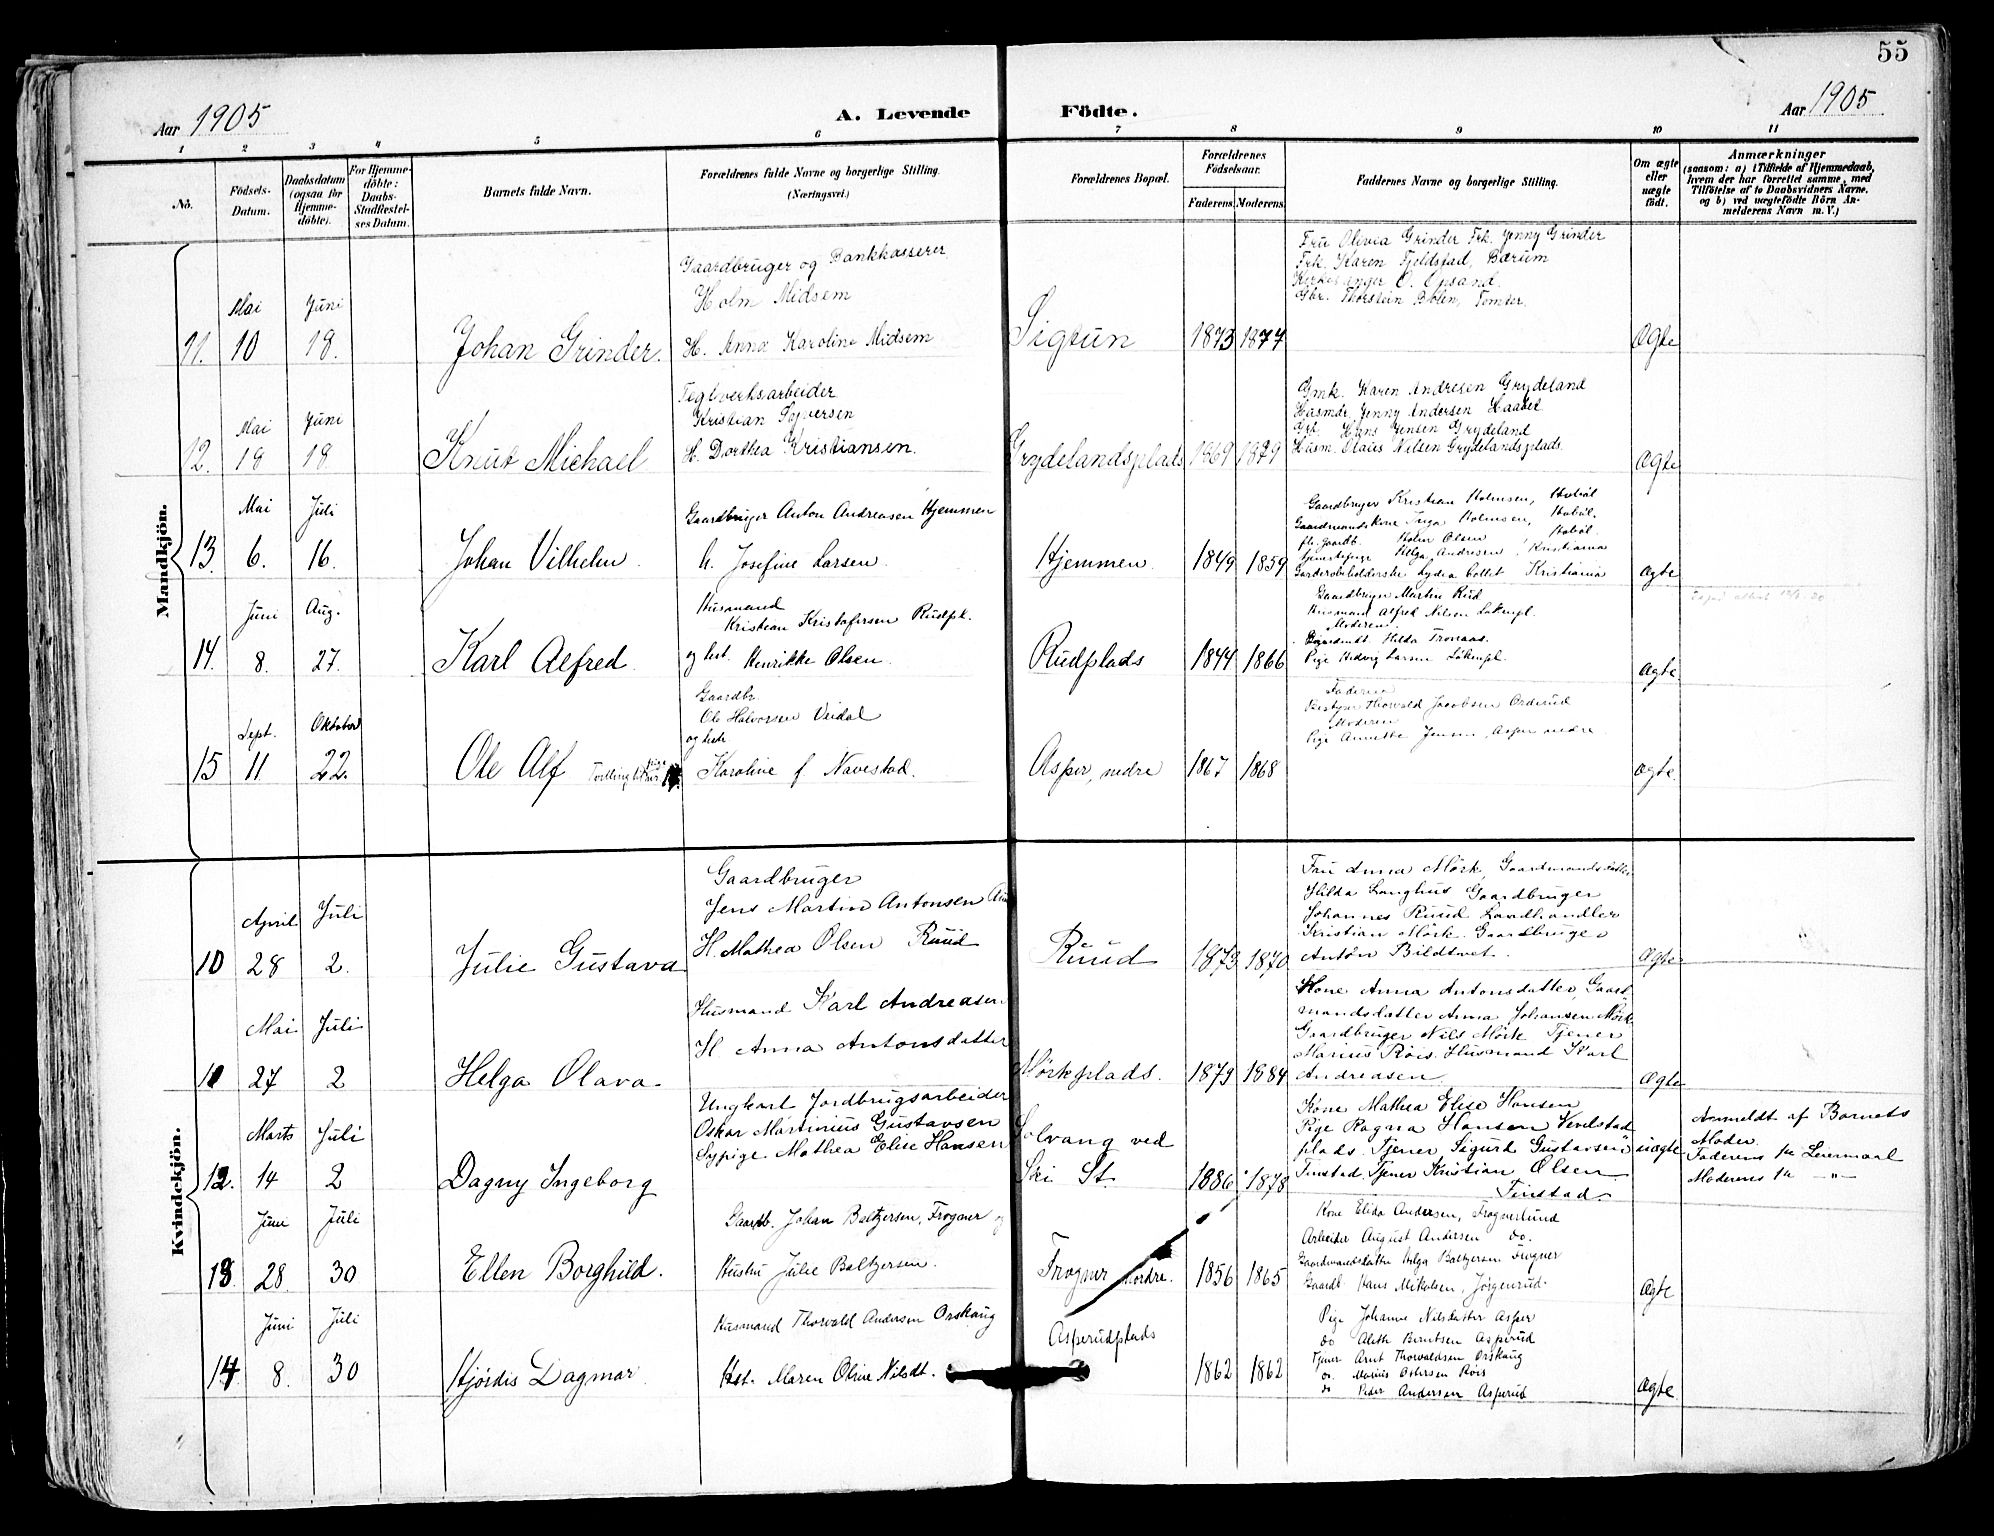 55
Aar 1905
A. Levende
Födte.
Aar 1905
1 2 3 4 5 6 7 8 9 10 11
No.
Födsels-
Datum.
Daabsdatum
(ogsaa for
Hjemme-
döbte).
For Hjemme-
döbte:
Daabs-
Stadfæstel-
ses Datum.
Barnets fulde Navn.
Forældrenes fulde Navne og borgerlige Stilling.
(Næringsvei.)
Forældrenes Bopæl.
Forældrenes
Födselsaar.
Faderens. Moderens.
Faddernes Navne og borgerlige Stilling.
Om ægte
eller
uægte
födt.
Anmærkninger
(saasom: a) i Tilfælde af Hjemmedaab,
hvem der har forrettet samme, med
Tilföielse af to Daabsvidners Navne.
og b) ved uægtefödte Börn An-
melderens Navn m. V.)
Mandkjön.
11. Mai 10 Juni 18.
Johan Grinder.
Gaardbruger og Bankkasserer
Holm Midsem
H. Anna Karoline Midsem
Sigtun 1873 1877
Fru Olivia Grinder Frk. Jenny Grinder
Frk. Karen Fjeldstad, Bærum
Kirkesanger O. Opsand.
Gbr. Thorstein Bolen, Tomter.
Ægte
12. Mai 18 Juni 18
Knut Michael
Teglverksarbeider
Kristian Syversen
H. Dorthea Kristiansen.
Grydelandsplads 1869 1879
Gmk. Karen Andresen Grydeland
Husmdr. Jenny Andersen Haabet
Gbr. Hans Jensen Grydeland
Husm. Olaus Nilsen Grydelandsplads.
Ægte
13. Mai 6. Juli 16.
Johan Vilhelm
Gaardbruger Anton Andreasen Hjemmen
h. Josefine Larsen.
Hjemmen. 1849 1859
Gaardbruger Kristian Holmsen, Hobøl
Gaardmandskone Inga Holmsen, Hobøl.
Holm Olsen Hobøl
Tjenestepige Helga Andresen, Kristiania
Garderobeholderske Lydia Collet Kristiania
Ægte
14. Juni 8. Aug. 27.
Karl Alfred
Husmand
Kristian Kristofersen Rudpl.
og hst. Henrikke Olsen.
Rudplads 1844 1866
Gaardbrgr Martin Rud
Husmand Alfred Nilsen Løkenpl.
Moderen.
Gaardmdt. Hilda Tronaas.
Pige Hedvig Larsen Løkenpl.
Ægte
15 Sept. 11 Oktober 22.
Ole Alf
Gaardbr.
Ole Halvorsen Veidal
og hstr.
Karoline f Navestad.
Asper, nedre 1867 1868
Faderen
Bestyrer Thorvald Jacobsen Orderud
Moderen
Pige Annette Jensen, Asper nedre
Ægte
Kvindekjön.
10 April 28 Juli 2.
Julie Gustava
Gaardbruger
Jens Martin Antonsen
H. Mathea Olsen Ruud
Ruud 1873 1870
Fru Anna Mörk, Gaardmandsdatter
Hilda Langhus Gaardbruger
Johannes Ruud Landhandler
Kristian Mörk. Gaardbruger
Anton Bildtvet.
Ægte
11 Mai 27 Juli 2
Helga Olava.
Husmand Karl Andreasen
H. Anna Antonsdatter
Mörkplads. 1879 1884
Kone Anna Antonsdatter, Gaard
mandsdatter Anna Johansen Mörk.
Gaardbruger Nils Mörk Tjener
Marius Röis. Husmand Karl
Andreasen.
Ægte
12. Marts 14 Juli 2
Dagny Ingeborg
Ungkarl Jordbrugsarbeider
Oskar Martinius Gustavsen
Sypige Mathea Elise Hansen
Solvang ved
Ski St. 1886 1878
Kone Mathea Elise Hansen
Pige Ragna Hansen Vevelstad
plads. Tjener Sigurd Gustavsen
Finstad. Tjener Kristian Olsen
Finstad.
uægte
Anmeldt af Barnets
Moder.
Faderens 1ste Leiermaal
Moderens 1ste -"-
13 Juni 28. Juli 30
Ellen Borghild.
Gaardb. Johan Baltzersen, Frogner og
Hustru Julie Baltzersen.
Frogner nordre. 1856 1865
Kone Elida Andersen, Frognerlund
Arbeider August Andersen do.
Gaardmandsdatter Helga Baltzersen Frogner
Gaardb. Hans Mikalsen, Jørgenrud.
Ægte
14 Juni 8. Juli 30
Hjördis Dagmar.
Husmand Thorvald Andersen Orskaug
Hst. Maren Oline Nilsdt.
Asperudplads
1862 1862
Pige Johanne Nilsdatter Asper
do Aleth Berntsen Asperud
Tjener Arnt Thorvaldsen Orskaug
do. Marius Ostersen Røis
do Peder Andersen Asperud
Ægte